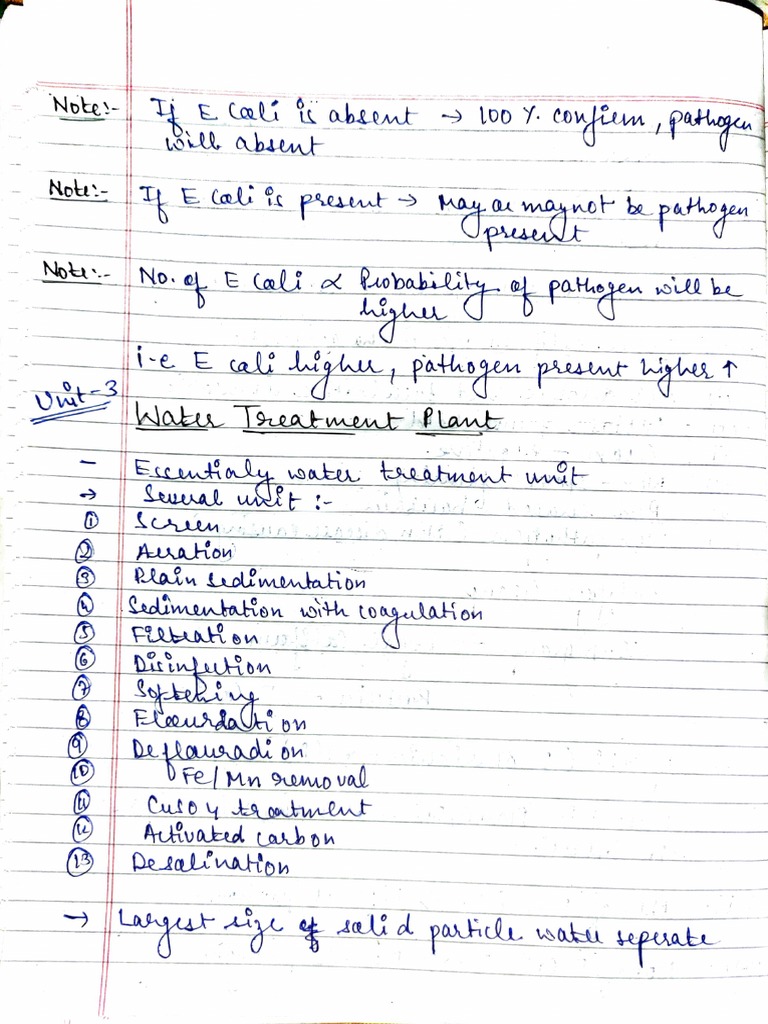 Note:- If E Coli is absent → 100 %. confirm, pathogen
will absent
Note:- If E Coli is present → May or maynot be pathogen
present
Note:- No. of E Coli ∝ Probability of pathogen will be
higher
i-e E coli higher, pathogen present higher ↑
Unit-3
Water Treatment Plant
- Essentialy water treatment unit
→ Several unit :-
① Screen
② Aeration
③ Plain sedimentation
④ Sedimentation with coagulation
⑤ Filtration
⑥ Disinfection
⑦ Softening
⑧ Flourdation
⑨ Deflouradion
⑩ Fe/Mn removal
⑪ CuSO4 treatment
⑫ Activated carbon
⑬ Desalination
→ Largest size of solid particle water seperate